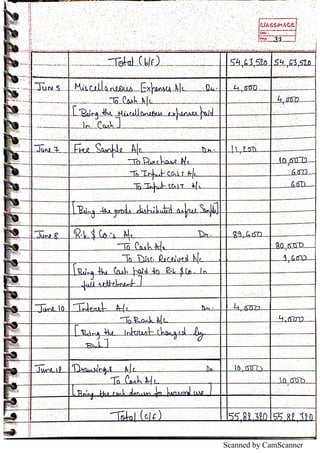 CLASSMATE
Date
Page 37
Total (b/f) 54,63,520 54,63,520
June 5 Miscellaneous Expenses A/c Dr. 4,000
To Cash A/c 4,000
[Being the Miscellaneous expenses paid
in Cash]
June 7 Free Sample A/c Dr. 11,200
To Purchase A/c 10,000
To Input CGST A/c 600
To Input SGST A/c 600
[Being the goods distributed as free Sample]
June 8 & Co.'s A/c Dr. 89,600
To Cash A/c 80,000
To Disc. Received A/c 9,600
[Being the Cash paid to & Co. in
full settlement]
June 10 Interest A/c Dr. 4,000
To Bank A/c 4,000
[Being the interest charged by
Bank]
June 12 Drawings A/c Dr. 10,000
To Cash A/c 10,000
[Being the cash drawn for personal use]
Total (c/f) 55,82,320 55,82,320
Scanned by CamScanner